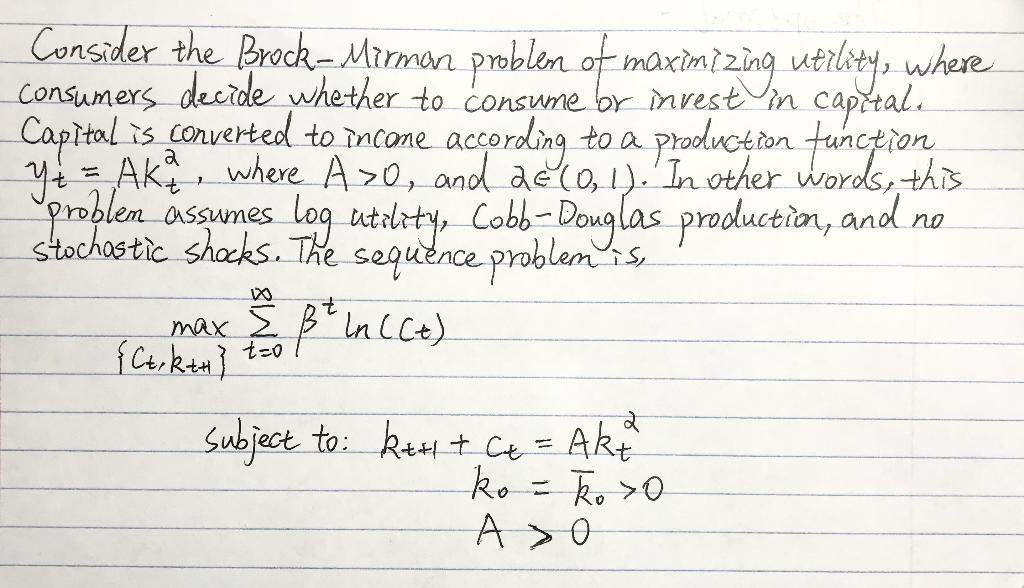 Consider the Brock-Mirman problem of maximizing utility, where
consumers decide whether to consume or invest in capital.
Capital is converted to income according to a production function
yₜ = Akₜ^α, where A > 0, and α ∈ (0, 1). In other words, this
problem assumes log utility, Cobb-Douglas production, and no
stochastic shocks. The sequence problem is,
max ∑_{t=0}^{∞} β^t ln(Cₜ)
{Cₜ, kₜ₊₁}
subject to: kₜ₊₁ + Cₜ = Akₜ^α
k₀ = k̄₀ > 0
A > 0